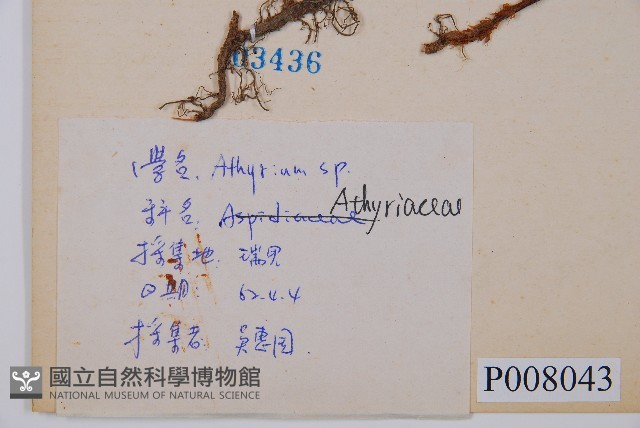 03436
學名. Athyrium sp.
科名. Aspidiaceae Athyriaceae
採集地. 瑞芳
日期: 62.4.4
採集者 吳惠国.
國立自然科學博物館
NATIONAL MUSEUM OF NATURAL SCIENCE
P008043